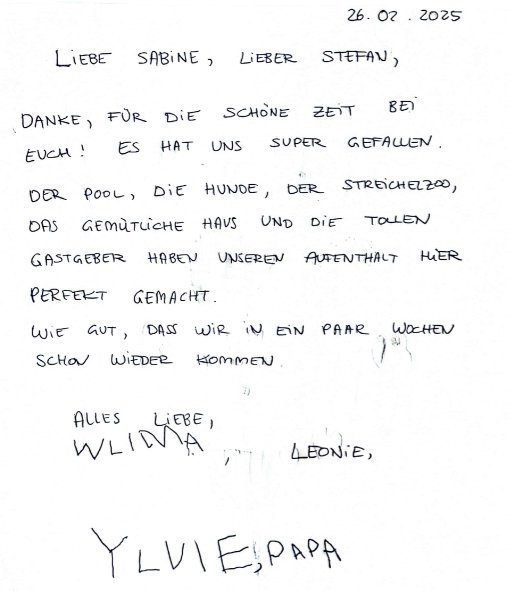 26.02.2025
LIEBE SABINE, LIEBER STEFAN,
DANKE, FÜR DIE SCHÖNE ZEIT BEI
EUCH! ES HAT UNS SUPER GEFALLEN.
DER POOL, DIE HUNDE, DER STREICHELZOO,
DAS GEMÜTLICHE HAUS UND DIE TOLLEN
GASTGEBER HABEN UNSEREN AUFENTHALT HIER
PERFEKT GEMACHT.
WIE GUT, DASS WIR IN EIN PAAR WOCHEN
SCHON WIEDER KOMMEN.
ALLES LIEBE,
WLIMA, LEONIE,
YLVIE, PAPA